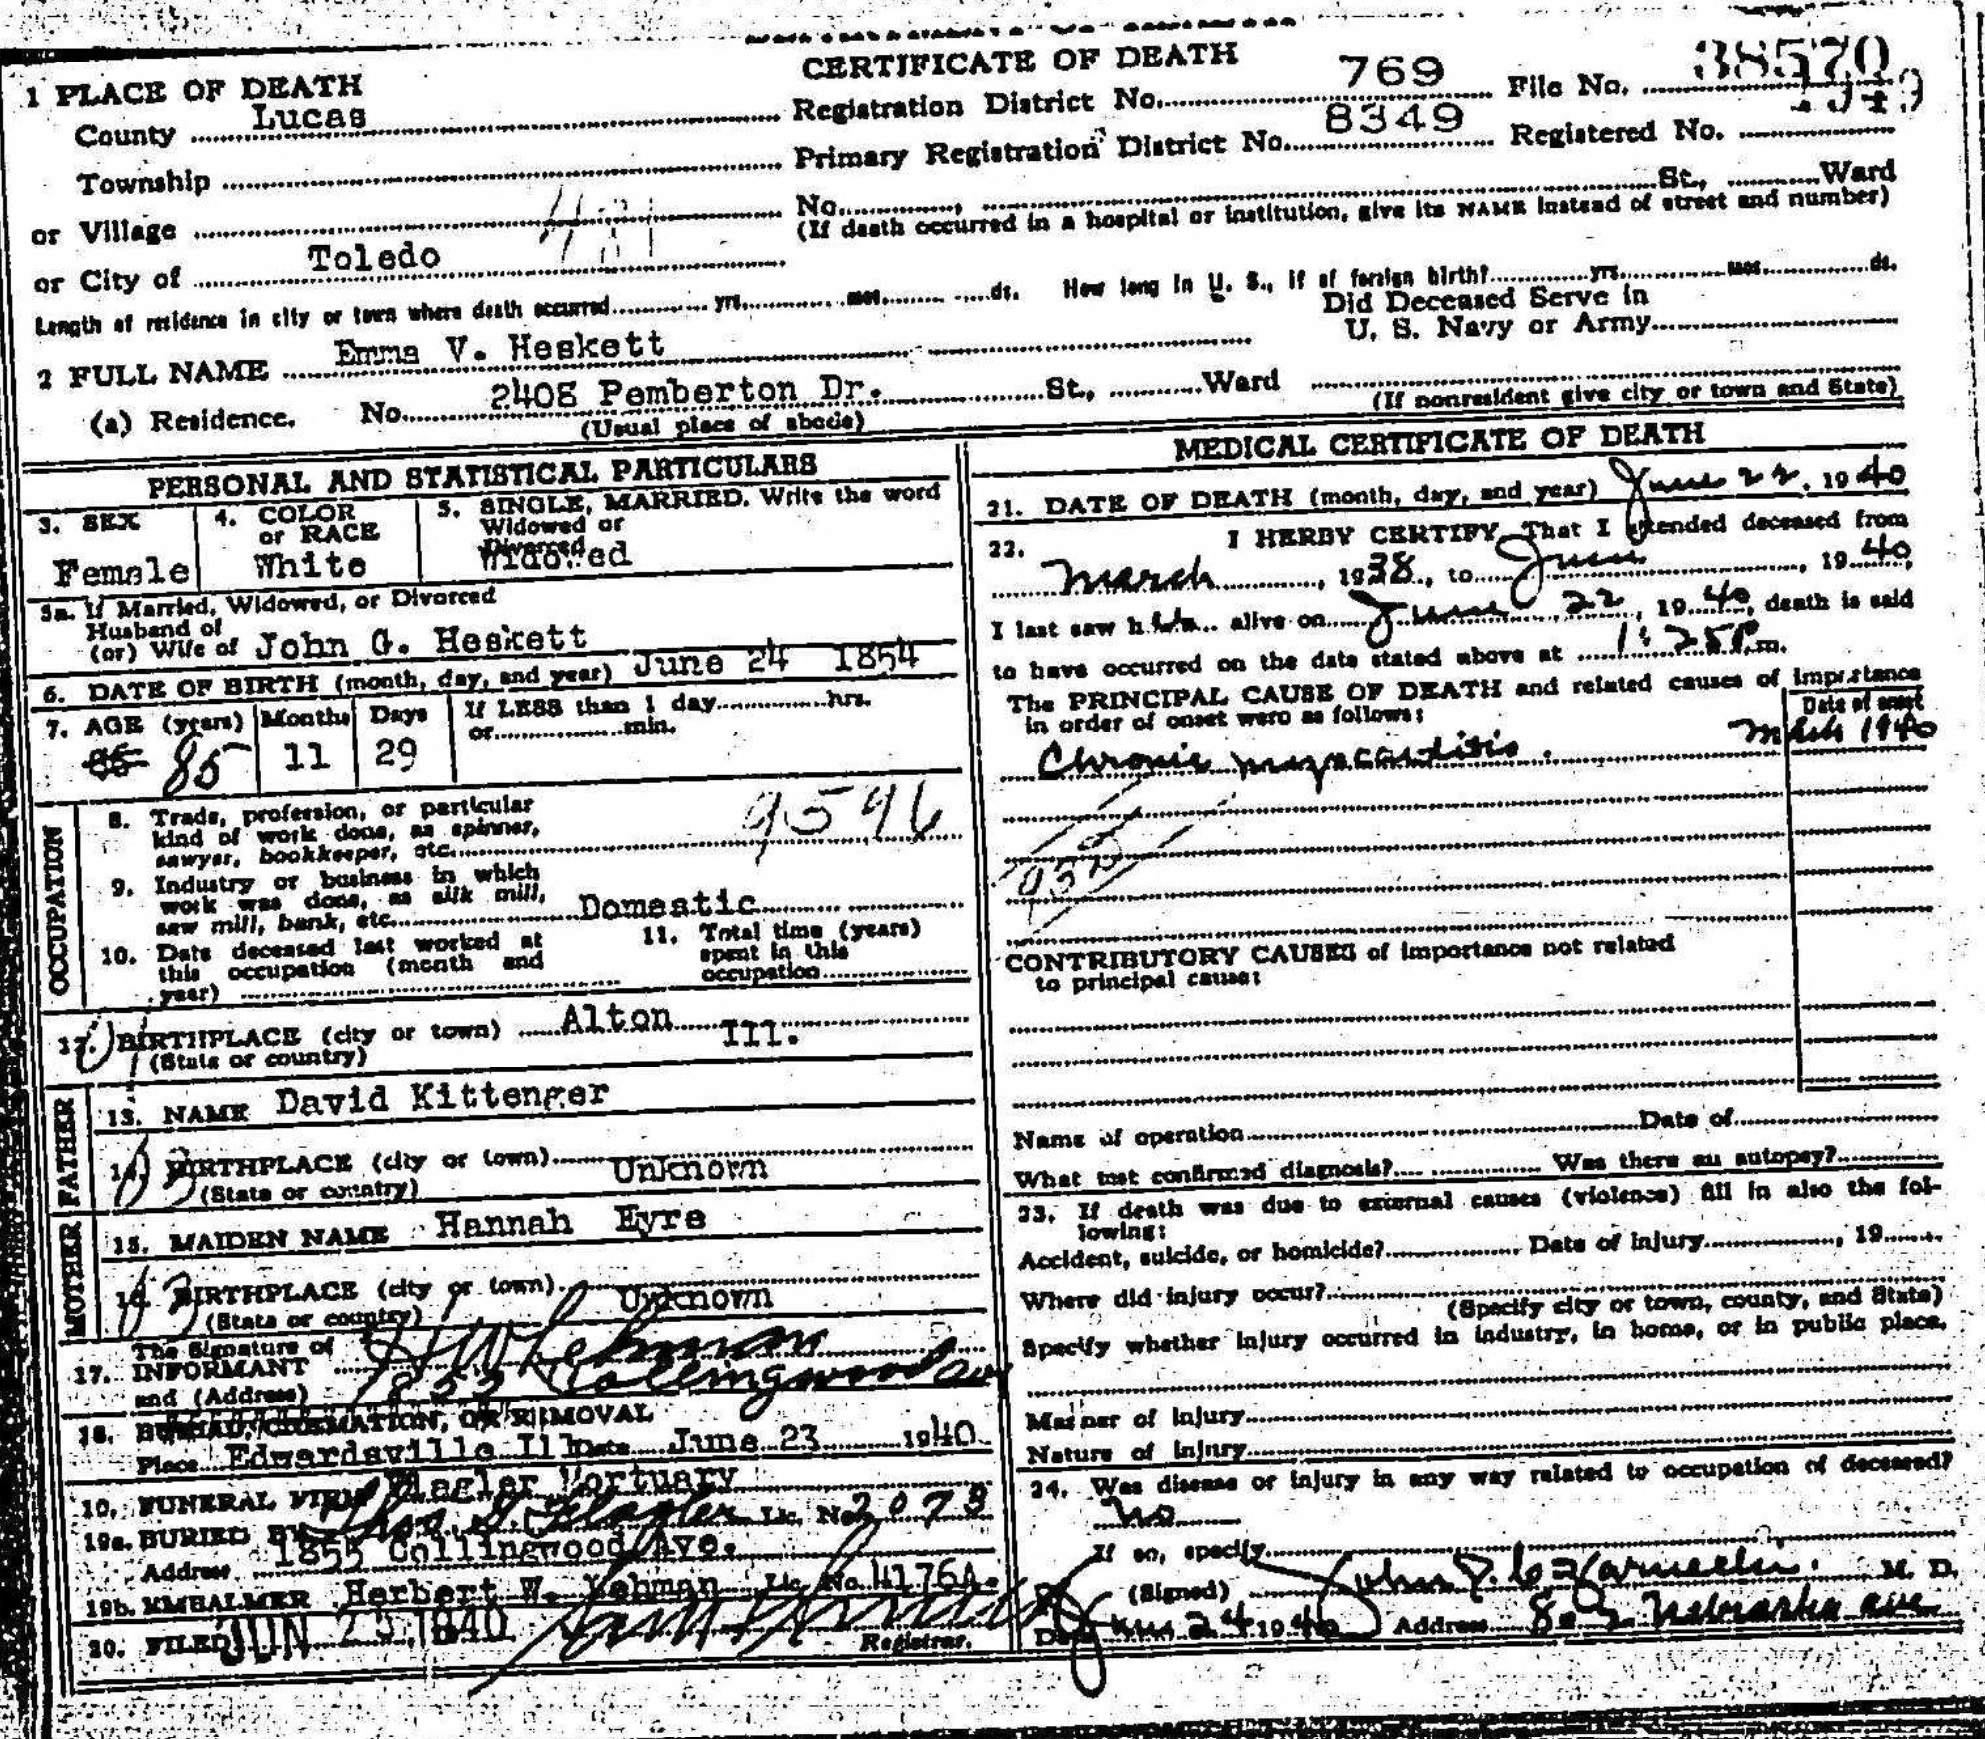 CERTIFICATE OF DEATH
1 PLACE OF DEATH
County Lucas
Registration District No. 769 File No. 38570
Township
Primary Registration District No. 8349 Registered No.
or Village
No. St., Ward
(If death occurred in a hospital or institution, give its NAME instead of street and number)
or City of Toledo
Length of residence in city or town where death occurred yrs. mos. ds. How long in U. S., if of foreign birth? yrs. mos. ds.
Did Deceased Serve in
U. S. Navy or Army
2 FULL NAME Emma V. Heskett
(a) Residence. No. 2408 Pemberton Dr. St., Ward
(Usual place of abode)
(If nonresident give city or town and State)
PERSONAL AND STATISTICAL PARTICULARS
3. SEX
Female
4. COLOR
or RACE
White
5. SINGLE, MARRIED, Write the word
Widowed or
Divorced
Widowed
5a. If Married, Widowed, or Divorced
Husband of
(or) Wife of John G. Heskett
6. DATE OF BIRTH (month, day, and year) June 24 1854
7. AGE (years) Months Days
If LESS than 1 day hrs.
or min.
85 11 29
OCCUPATION
8. Trade, profession, or particular
kind of work done, as spinner,
sawyer, bookkeeper, etc.
9596
9. Industry or business in which
work was done, as silk mill,
saw mill, bank, etc. Domestic
10. Date deceased last worked at
this occupation (month and
year)
11. Total time (years)
spent in this
occupation
12. BIRTHPLACE (city or town) Alton
(State or country) Ill.
FATHER
13. NAME David Kittenger
14. BIRTHPLACE (city or town) Unknown
(State or country)
MOTHER
15. MAIDEN NAME Hannah Eyre
16. BIRTHPLACE (city or town) Unknown
(State or country)
The Signature of
17. INFORMANT H W Lehman
and (Address) 1855 Collingwood av
18. BURIAL, CREMATION, OR REMOVAL
Place Edwardsville Ill Date June 23 1940
19. FUNERAL FIRM Mortuary
19a. BURIED BY Lic. No. 2073
Address 1855 Collingwood Ave.
19b. EMBALMER Herbert W. Lehman Lic. No. 4176A.
20. FILED JUN 1940
Registrar.
MEDICAL CERTIFICATE OF DEATH
21. DATE OF DEATH (month, day, and year) June 22, 1940
22. I HERBY CERTIFY, That I attended deceased from
March, 1938, to June, 1940,
I last saw h alive on June 22, 1940, death is said
to have occurred on the date stated above at 1:25P.m.
The PRINCIPAL CAUSE OF DEATH and related causes of importance
in order of onset were as follows:
Date of onset
Chronic myocarditis. March 1940
CONTRIBUTORY CAUSES of importance not related
to principal cause:
Name of operation Date of
What test confirmed diagnosis? Was there an autopsy?
23. If death was due to external causes (violence) fill in also the fol-
lowing:
Accident, suicide, or homicide? Date of injury, 19
Where did injury occur?
(Specify city or town, county, and State)
Specify whether injury occurred in industry, in home, or in public place.
Manner of Injury
Nature of Injury
24. Was disease or injury in any way related to occupation of deceased?
No
If so, specify
(Signed) John M. D.
Date June 24 1940 Address Nebraska ave